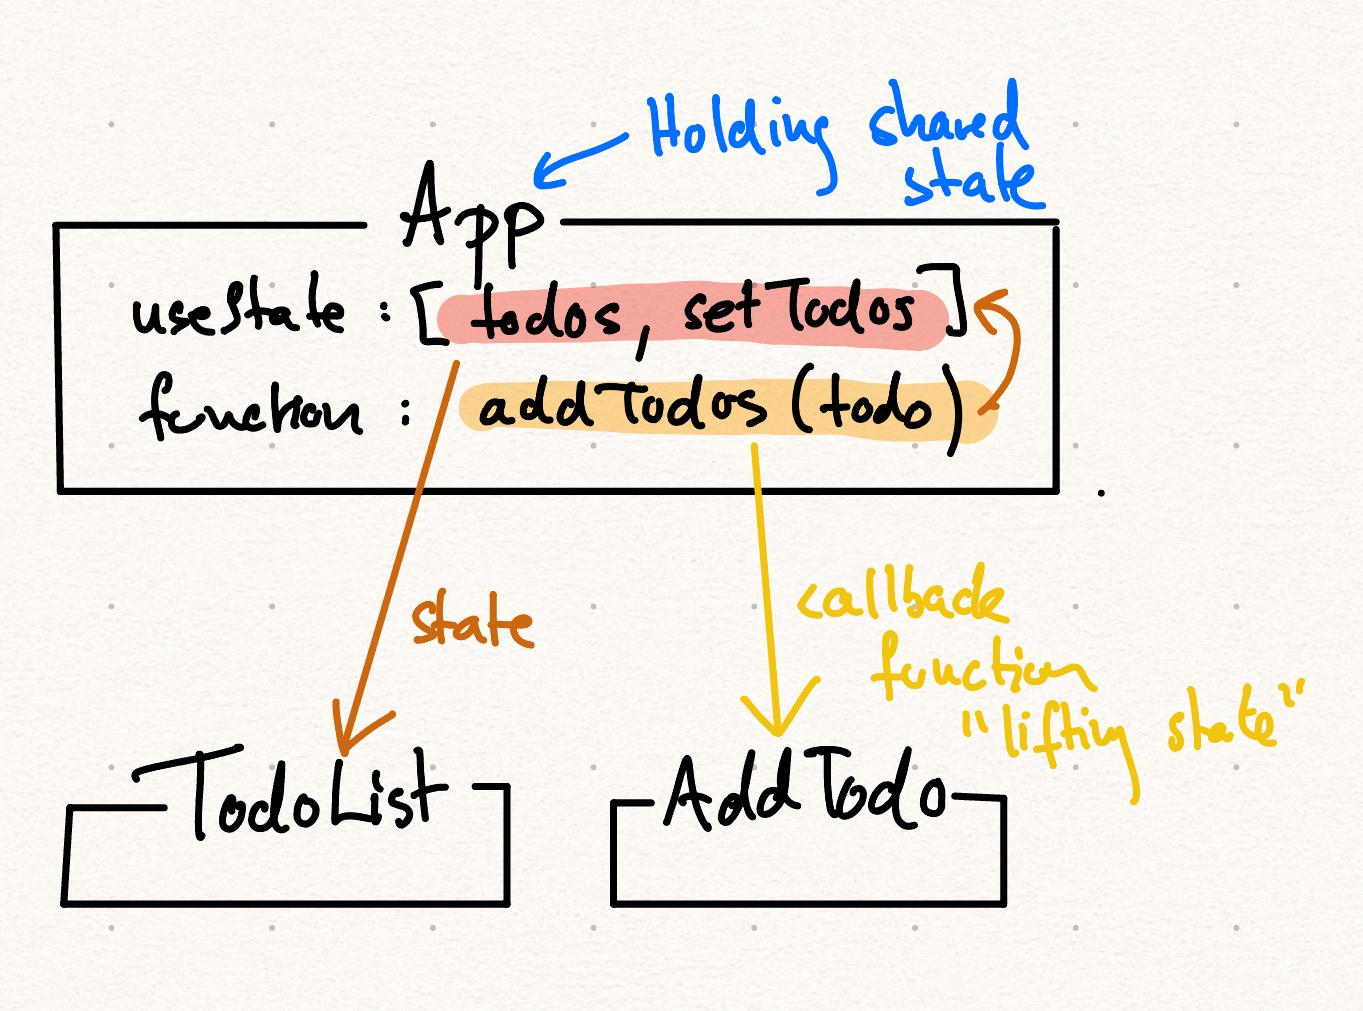 Holding shared
state
App
useState : [todos, setTodos]
function : addTodos (todo)
state
callback
function
"lifting state"
TodoList
AddTodo